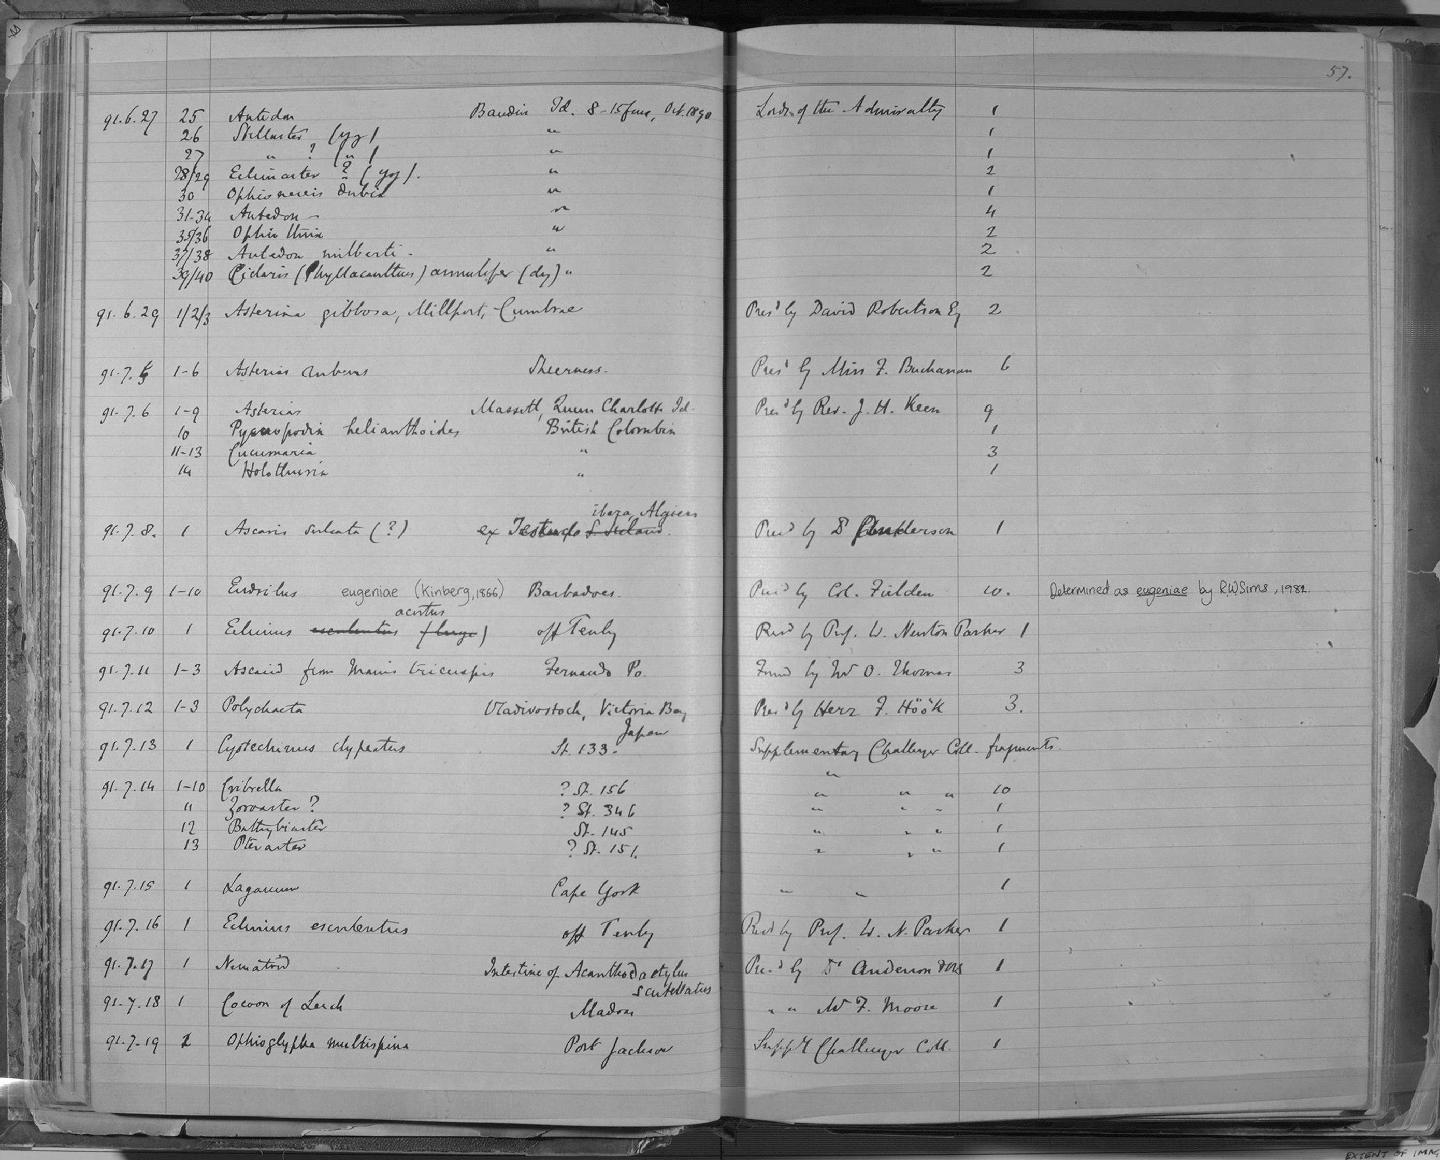 57.
91.6.27 25 Antedon Baudin Id. 8-15 fms, Oct. 1890 Lords of the Admiralty 1
26 Stellaster (yg) " 1
27 " ? (") " 1
28/29 Echinaster ? (yg). " 2
30 Ophionereis dubia " 1
31-34 Antedon - " 4
35/36 Ophiothrix " 2
37/38 Antedon milberti - " 2
39/40 Cidaris (Phyllacanthus) annulifer (dry) " 2
91.6.29 1/2/3 Asterina gibbosa, Millport, Cumbrae Pres'd by David Robertson Eq 2
91.7.5 1-6 Asterias rubens Sheerness. Pres'd by Miss F. Buchanan 6
91.7.6 1-9 Asterias Massett, Queen Charlotte Id. Pres'd by Rev. J. H. Keen 9
10 Pycnopodia helianthoides British Columbia 1
11-13 Cucumaria " 3
14 Holothuria " 1
ibera, Algiers
91.7.8. 1 Ascaris sulcata (?) ex Testudo Pres'd by Dr Anderson 1
91.7.9 1-10 Eudrilus eugeniae (Kinberg, 1866) Barbadoes. Pres'd by Col. Fielden 10. Determined as eugeniae by R.W Sims, 1982
acutus
91.7.10 1 Echinus esculentus (large) off Tenby Pres'd by Prof. W. Newton Parker 1
91.7.11 1-3 Ascarid from Manis tricuspis Fernando Po. Found by Mr O. Thomas 3
91.7.12 1-3 Polychaeta Vladivostock, Victoria Bay Pres'd by Herr F. Höök 3.
Japan
91.7.13 1 Cystechinus clypeatus St. 133. Supplementary Challenger Coll. fragments
91.7.14 1-10 Cribrella ? St. 156 " " " 10
11 Zoroaster ? ? St. 346 " " " 1
12 Bathybiaster St. 145 " " " 1
13 Pteraster ? St. 151. " " " 1
91.7.15 1 Laganum Cape York " " 1
91.7.16 1 Echinus esculentus off Tenby Pres'd by Prof. W. N. Parker 1
91.7.17 1 Nematoid Intestine of Acanthodactylus Pres'd by Dr Anderson FRS 1
scutellatus
91.7.18 1 Cocoon of Leech Madras " " Mr F. Moore 1
91.7.19 1 Ophioglypha multispina Port Jackson Suppl Challenger Coll. 1
EXTENT OF IMAG